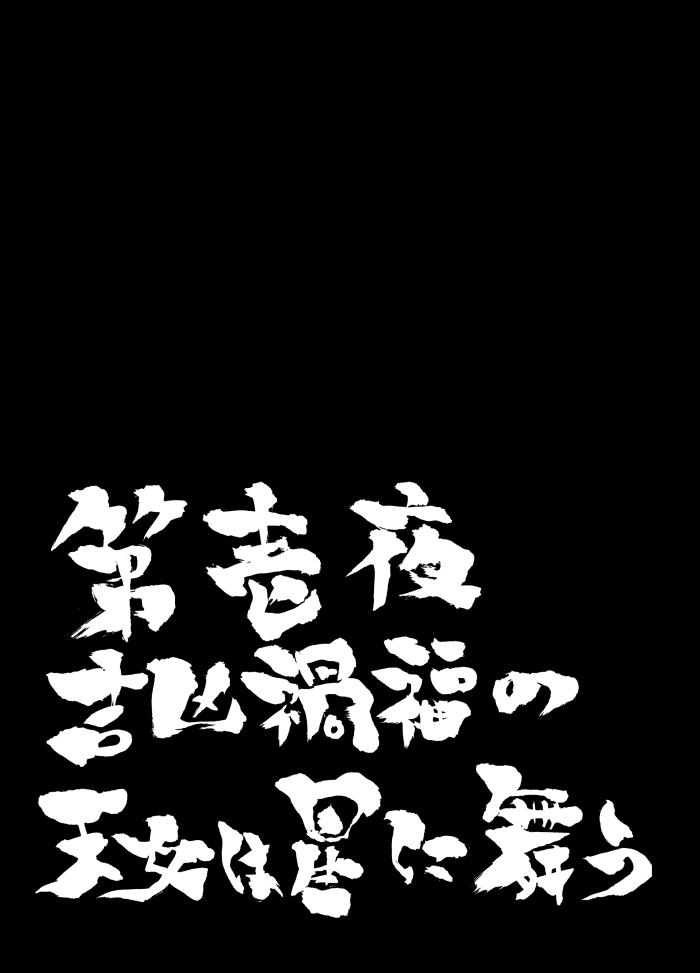 第壱夜
吉凶禍福の
王女は星に舞う